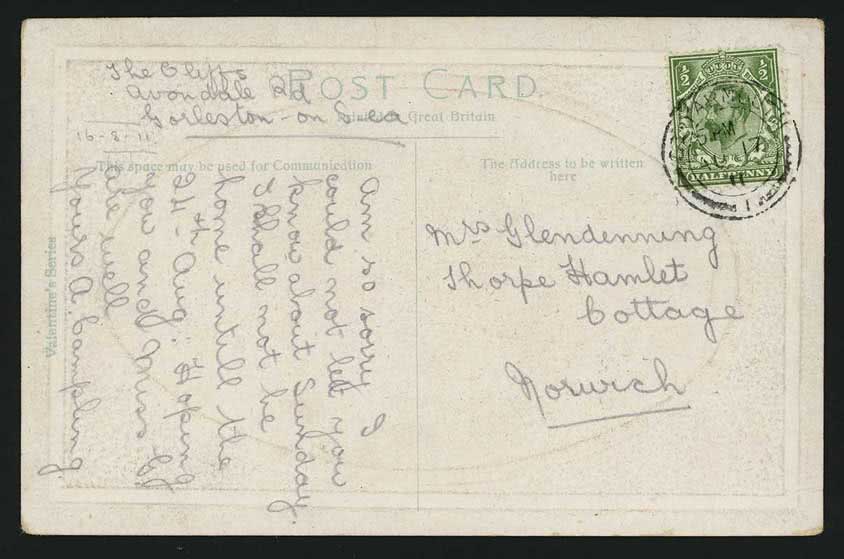 POST CARD
The Cliffs
Avondale Rd
Gorleston-on Sea
Great Britain
16-8-11
This space may be used for Communication
The Address to be written
here
Am so sorry I
could not let you
know about Sunday.
I shall not be
home untill the
24th Aug: Hoping
you and Miss G.
are well
Yours A. Campling.
Mrs Glendenning
Thorpe Hamlet
Cottage
Norwich
Valentine's Series
½ ½
HALFPENNY
PM
17
11